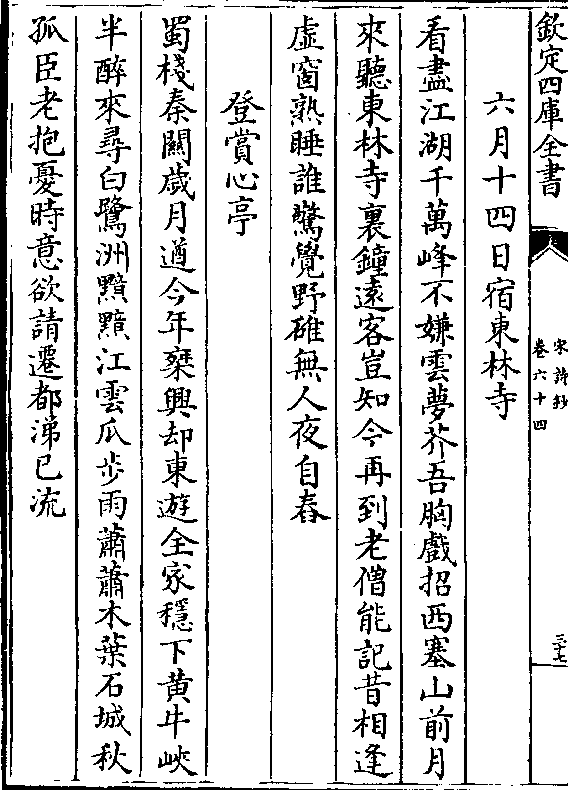 欽定四庫全書
宋詩鈔
卷六十四
三十七
六月十四日宿東林寺
看盡江湖千萬峰不嫌雲夢芥吾胸戲招西塞山前月
來聽東林寺裏鐘遠客豈知今再到老僧能記昔相逢
虛窗熟睡誰驚覺野碓無人夜自舂
登賞心亭
蜀棧秦關歲月遒今年乗興却東遊全家穩下黄牛峽
半醉來尋白鷺洲黯黯江雲瓜歩雨蕭蕭木葉石城秋
孤臣老抱憂時意欲請遷都涕已流